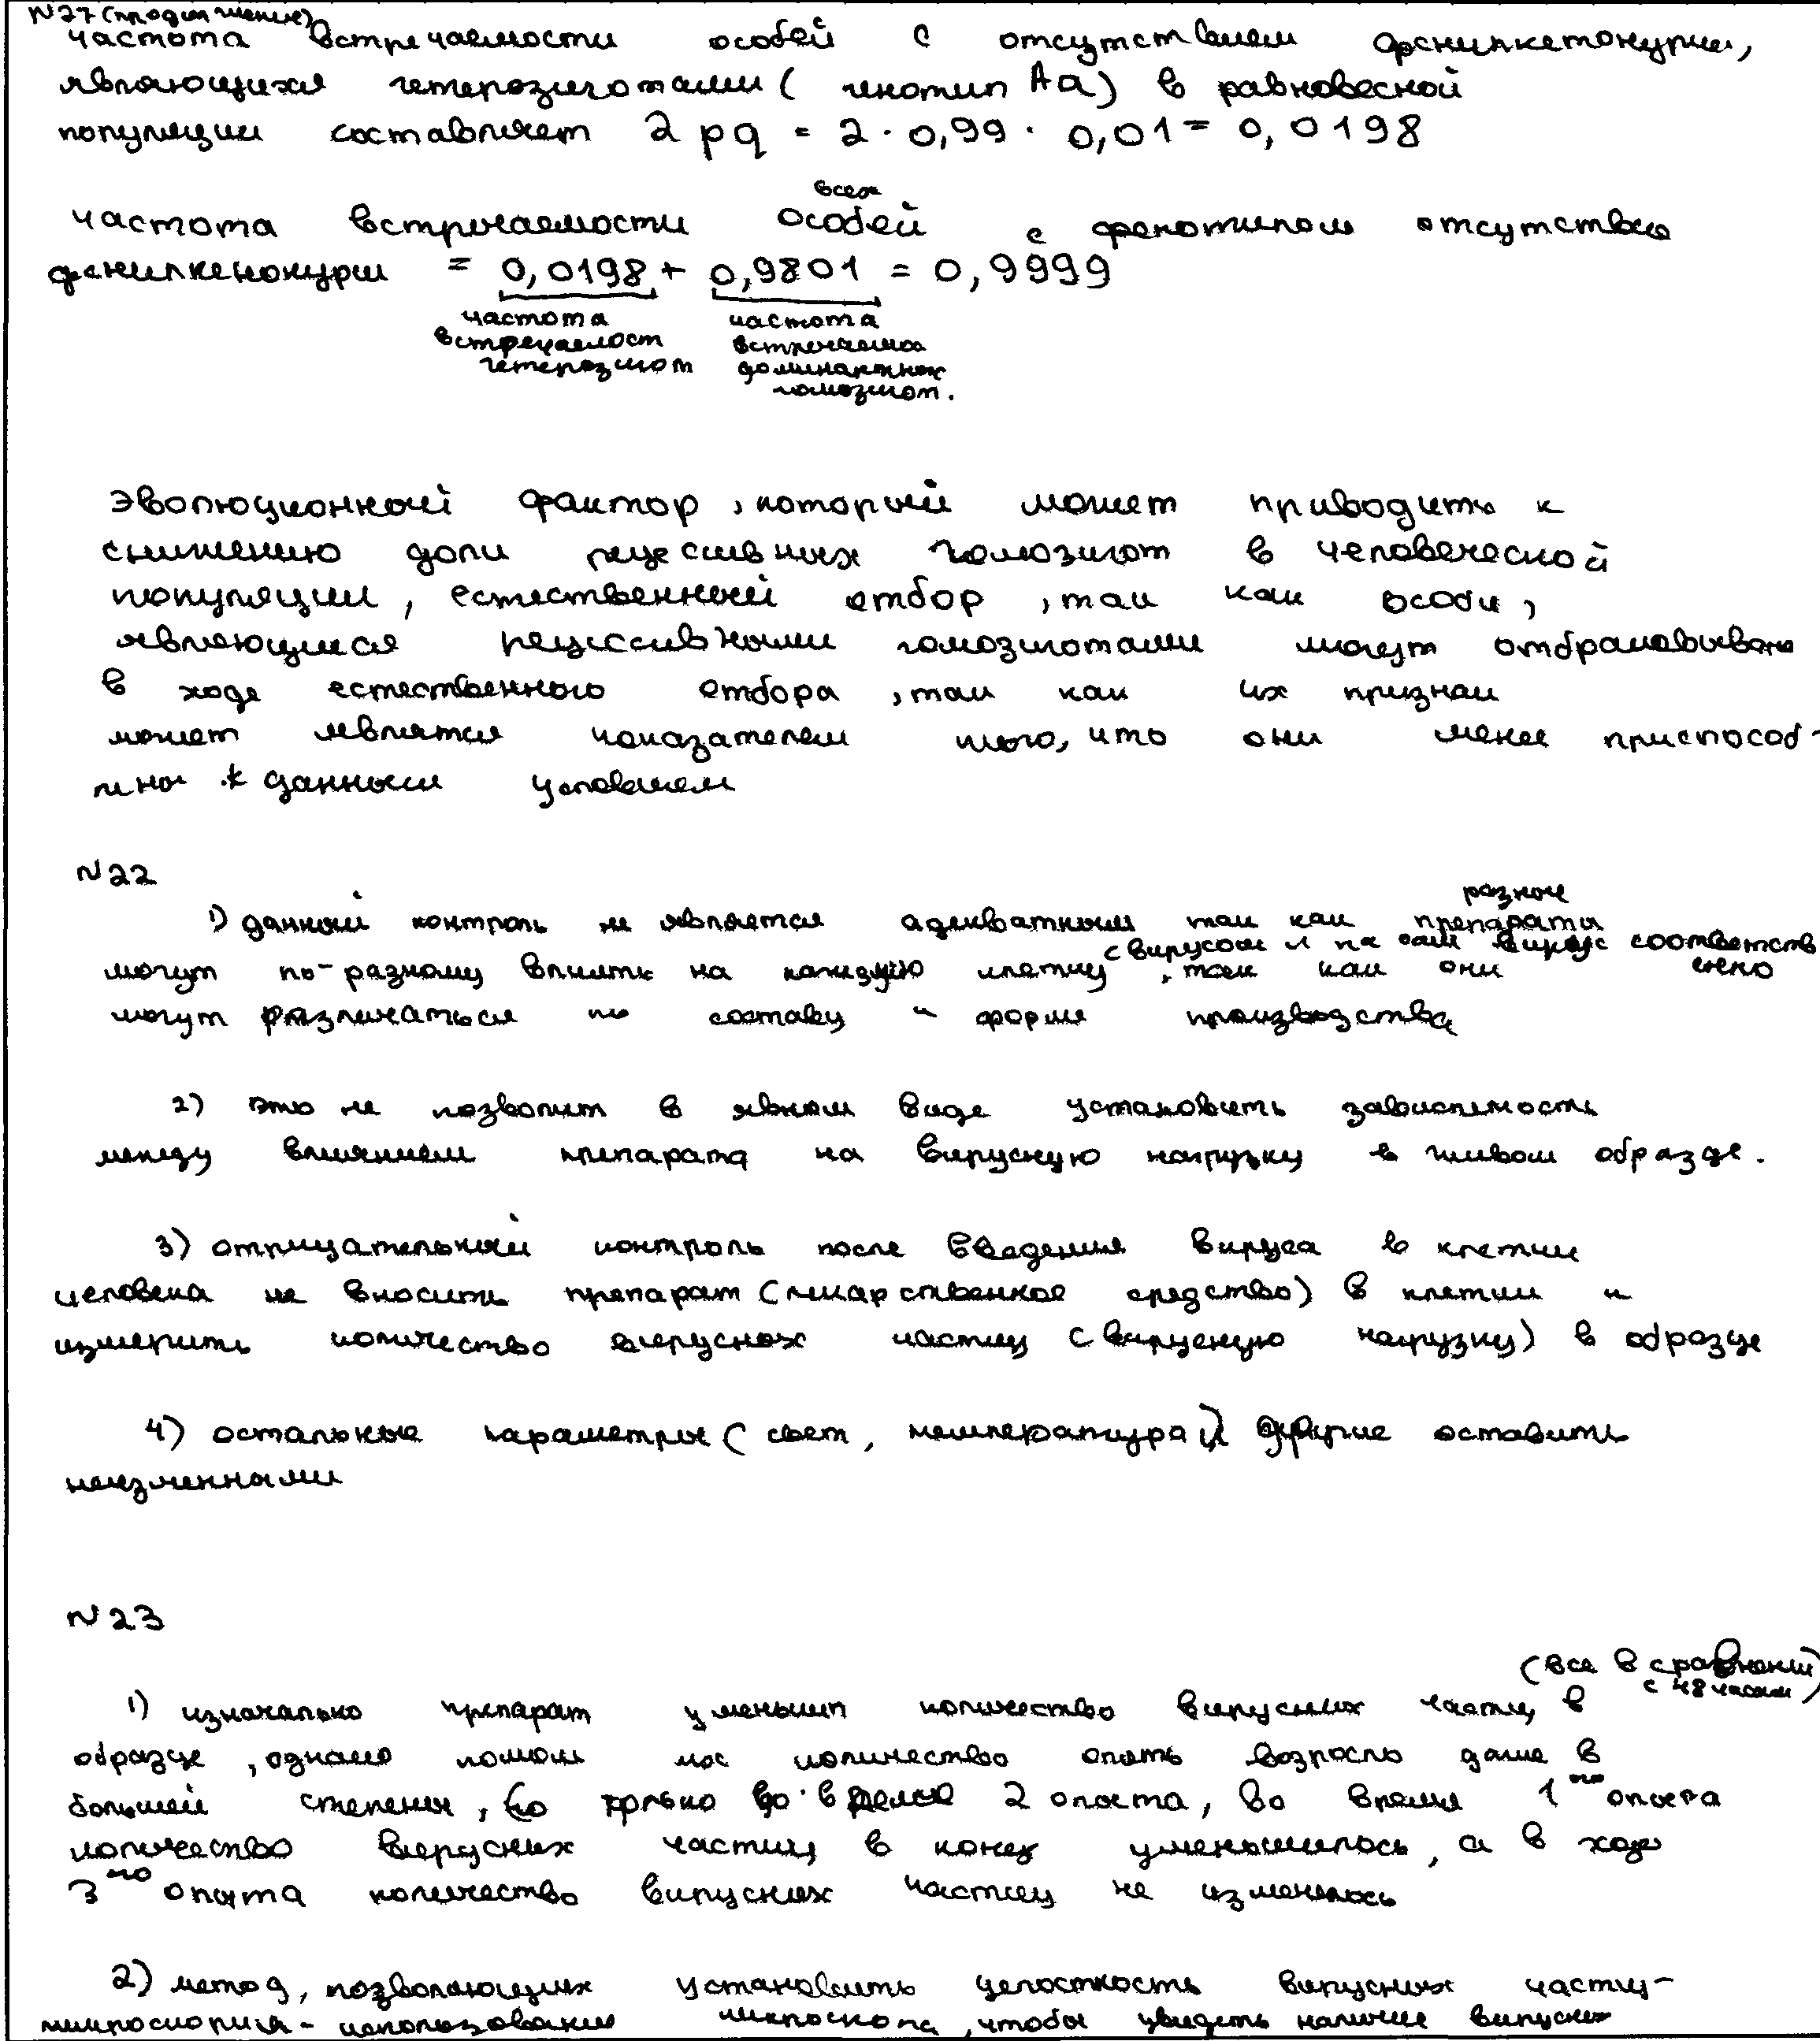 N27 (продолжение)
частота встречаемости особей с отсутствием фенилкетонурии,
являющихся гетерозиготами (генотип Aa) в равновесной
популяции составляет 2pq = 2 · 0,99 · 0,01 = 0,0198
частота встречаемости всех особей с фенотипом отсутствия
фенилкенонурии = 0,0198 + 0,9801 = 0,9999
частота частота
встречаемост встречаемос
гетерозигот доминантных
гомозигот.
Эволюционный фактор, который может приводить к
снижению доли рецессивных гомозигот в человеческой
популяции, естественный отбор, так как особи,
являющиеся рецессивными гомозиготами могут отбраковывать
в ходе естественного отбора, так как их признак
может являться показателем того, что они менее приспособ-
лены к данным условиям
N22
1) данный контроль не является адекватным так как разные препараты
с вирусом и на сам вирус соответственно
могут по-разному влиять на каждую клетку, так как они
могут различаться по составу и форме производства
2) это не позволит в явном виде установить зависимость
между влиянием препарата на вирусную нагрузку в живом образце.
3) отрицательный контроль после введения вируса в клетки
человека не вносить препарат (лекарственное средство) в клетки и
измерить количество вирусных частиц (вирусную нагрузку) в образце
4) остальные параметры (свет, температура) и другие оставить
неизменными
N23
(все в сравнении
с 48 часами)
1) изначально препарат уменьшил количество вирусных частиц в
образце, однако потом их количество опять возросло даже в
большей степени, но только во время 2 опыта, во время 1го опыта
количество вирусных частиц в конец уменьшилось, а в ходе
3го опыта количество вирусних частиц не изменилось
2) метод, позволяющих установить целостность вирусных частиц-
микроскопия - использование микроскопа, чтобы увидеть наличие вирусных